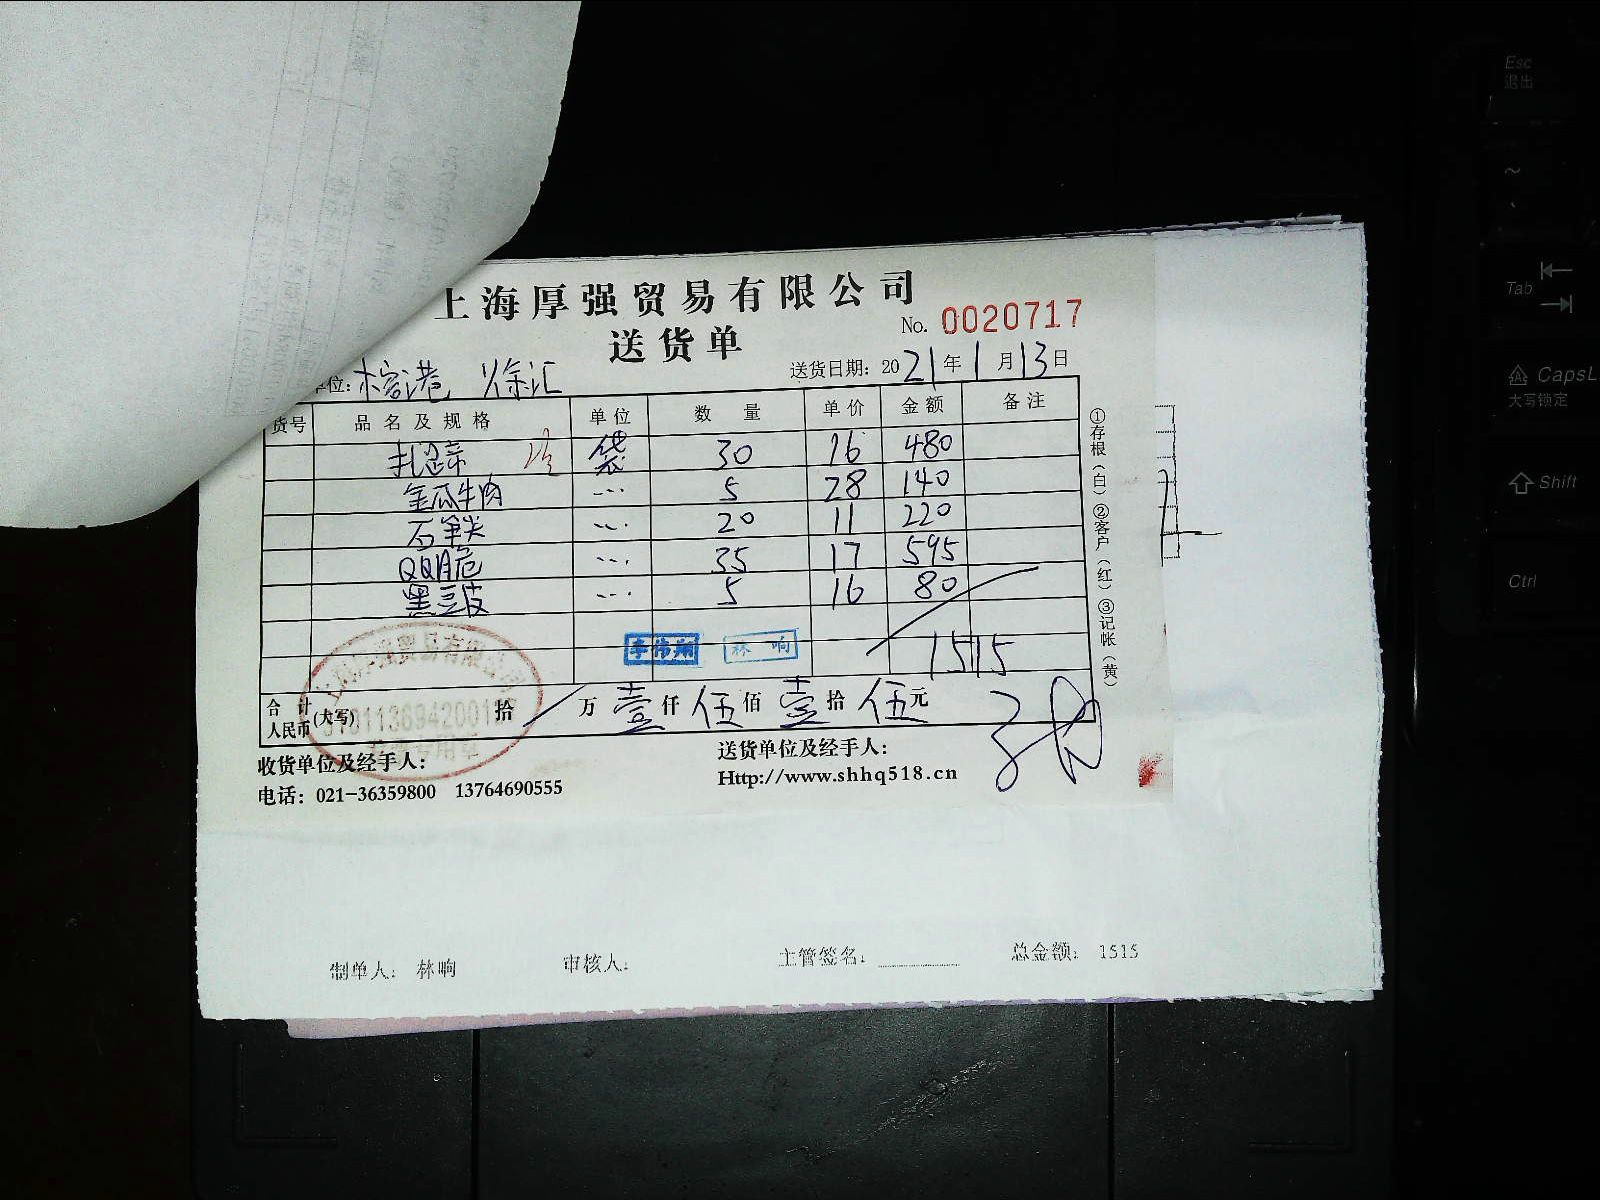 上海厚强贸易有限公司
送货单
No. 0020717
单位：榕港 徐汇
送货日期：2021年1月13日
货号 品名及规格 单位 数量 单价 金额 备注
扎蹄 袋 30 16 480
金瓜牛肉 〃 5 28 140
石笋尖 〃 20 11 220
QQ脆 〃 35 17 595
黑豆皮 〃 5 16 80
李伟翔 林响
1515
合计人民币(大写) 拾 万 壹仟伍佰壹拾伍元
收货单位及经手人：
送货单位及经手人：
电话：021-36359800 13764690555
Http://www.shhq518.cn
①存根（白）②客户（红）③记帐（黄）
制单人：林响 审核人： 主管签名： 总金额：1515
Esc
退出
~
Tab
CapsL
大写锁定
Shift
Ctrl